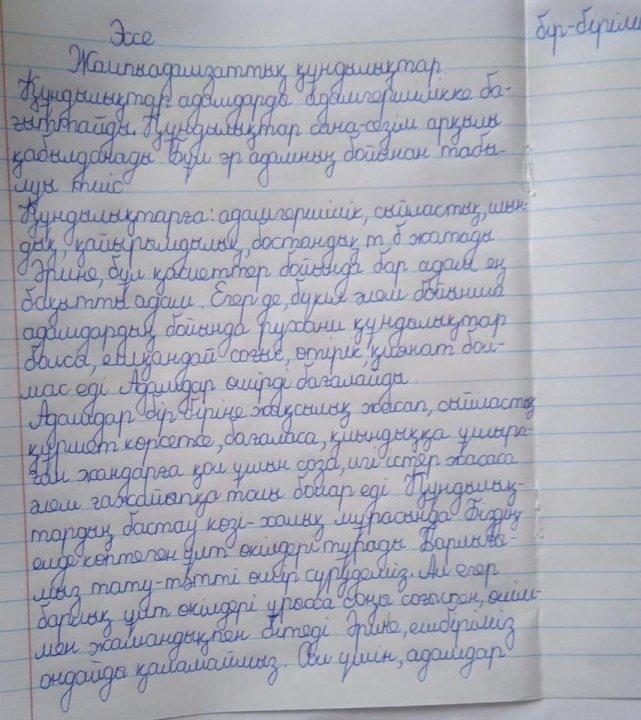 Эссе
бір-біріне
Жалпыадамзаттық құндылықтар
Құндылықтар адамдарды адамгершілікке ба-
ғыттайды. Құндылықтар сана-сезім арқылы
қабылданады Бұл әр адамның бойынан табы-
луы тиіс
Құндылықтарға: адамгершілік, сыйластық, шын-
дық, қайырымдылық, бостандық т.б жатады
Әрине, бұл қасиеттер бойында бар адам ең
бақытты адам. Егер де, бүкіл әлем бойынша
адамдардың бойында рухани құндылықтар
болса, ешқандай соғыс, өтірік, қиянат бол-
мас еді. Адамдар өмірді бағалайды.
Адамдар бір біріне жақсылық жасап, сыйластық
құрмет көрсетсе, бағаласа, қиындыққа ұшыра-
ған жандарға қол ұшын соза, игі істер жасаса
әлем ғажайыпқа толы болар еді. Құндылық-
тардың бастау көзі-халық мұрасында Біздің
елде көптеген ұлт өкілдері тұрады Барлығы-
мыз тату-тәтті өмір сүрудеміз. Ал егер
барлық ұлт өкілдері ұрысса соңы соғыспен, өлім-
мен жамандықпен бітеді Әрине, ешбіріміз
ондайды қаламаймыз. Сол үшін, адамдар